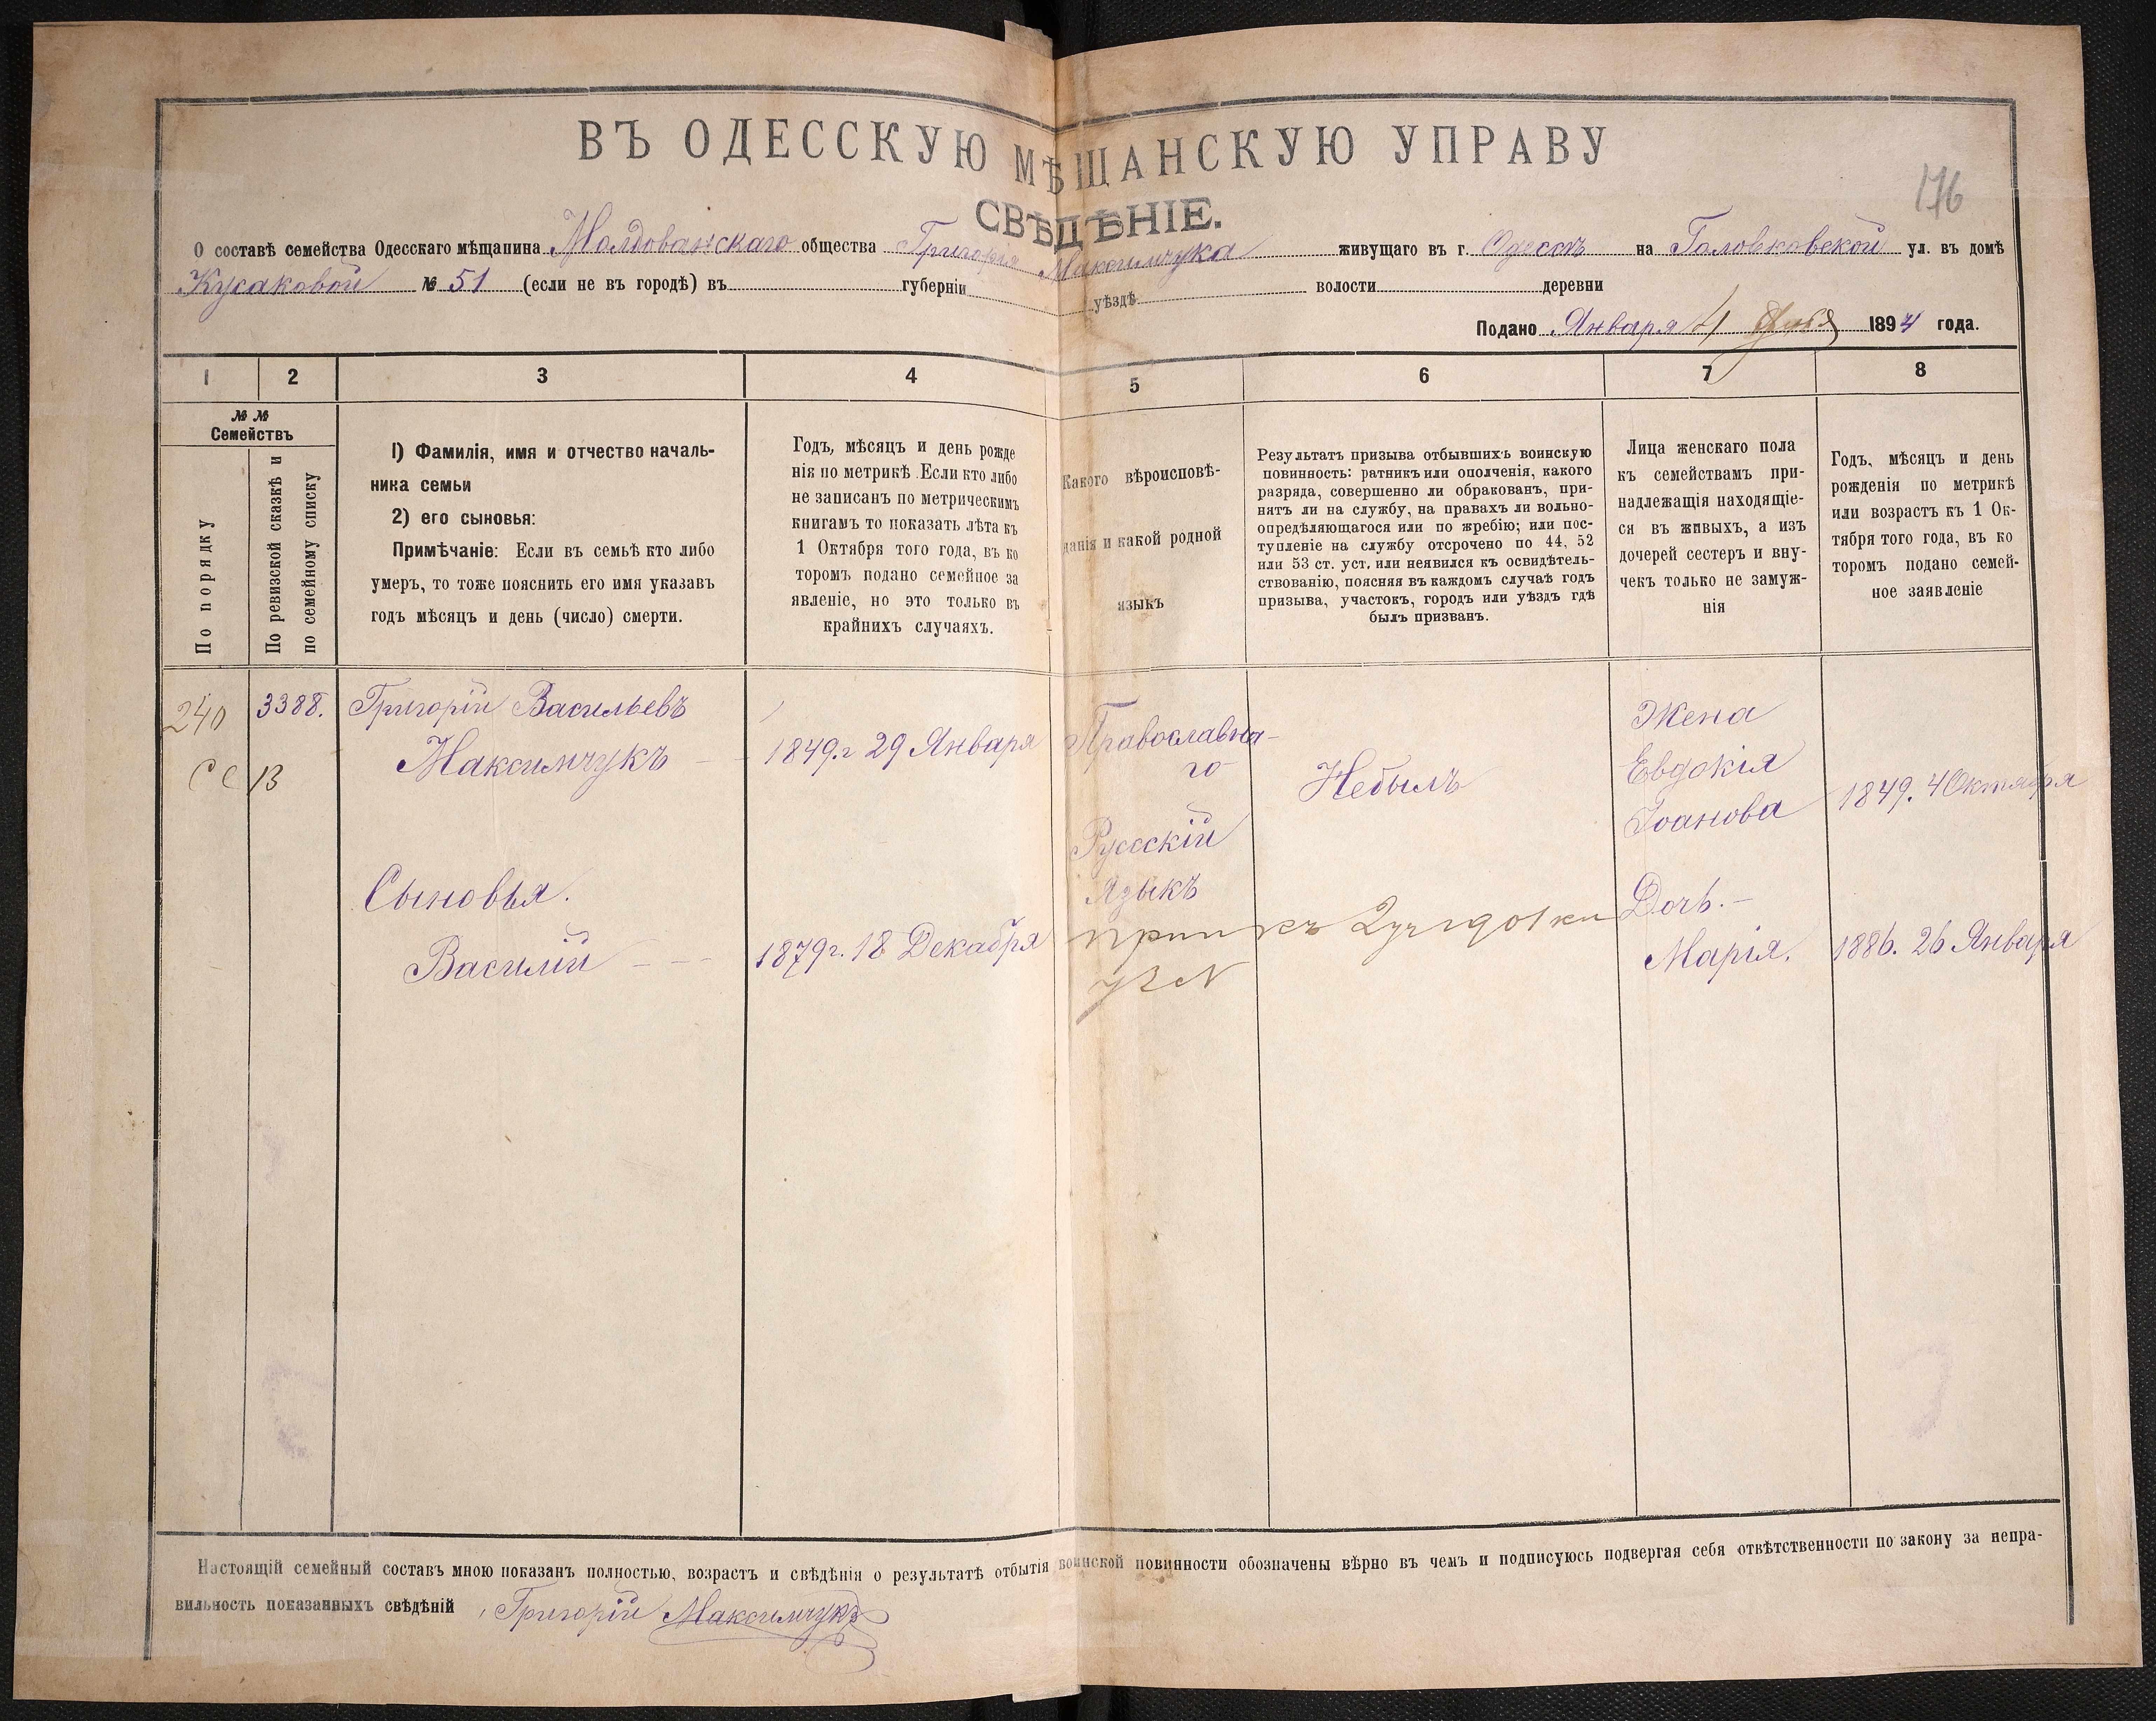 ВЪ ОДЕССКУЮ МѢЩАНСКУЮ УПРАВУ
176
СВѢДѢНІЕ.
О составѣ семейства Одесскаго мѣщанина Молдованскаго общества Григорія Максимчука живущаго въ г. Одессѣ на Головковской ул. въ домѣ
Кусаковой № 51 (если не въ городѣ) въ губерніи уѣздѣ волости деревни
Подано Января 4 1894 года.
1 2 3 4 5 6 7 8
№ № Семействъ
По порядку
По ревизской сказкѣ и
по семейному списку
1) Фамилія, имя и отчество началь-
ника семьи
2) его сыновья:
Примѣчаніе: Если въ семьѣ кто либо
умеръ, то тоже пояснить его имя указавъ
годъ мѣсяцъ и день (число) смерти.
Годъ, мѣсяцъ и день рожде
нія по метрикѣ. Если кто либо
не записанъ по метрическимъ
книгамъ то показать лѣта къ
1 Октября того года, въ ко
торомъ подано семейное за
явленіе, но это только въ
крайнихъ случаяхъ.
Какого вѣроисповѣ-
данія и какой родной
языкъ
Результатъ призыва отбывшихъ воинскую
повинность: ратникъ или ополченія, какого
разряда, совершенно ли обракованъ, при-
нятъ ли на службу, на правахъ ли вольно-
опредѣляющагося или по жребію; или пос-
тупленіе на службу отсрочено по 44, 52
или 53 ст. уст. или неявился къ освидѣтель-
ствованію, поясняя въ каждомъ случаѣ годъ
призыва, участокъ, городъ или уѣздъ гдѣ
былъ призванъ.
Лица женскаго пола
къ семействамъ при-
надлежащія находящіе-
ся въ живыхъ, а изъ
дочерей сестеръ и вну-
чекъ только не замуж-
нія
Годъ, мѣсяцъ и день
рожденія по метрикѣ
или возрастъ къ 1 Ок-
тября того года, въ ко
торомъ подано семей-
ное заявленіе
240
3388.
Григорій Васильевъ
Максимчукъ
1849.г 29 Января
Православна-
го
Русскій
Языкъ
Небылъ
Жена
Евдокія
Іоанова
1849. 4 Октября
Сыновья.
Василій
1879г. 18 Декабря
Дочь.
Марія.
1886. 26 Января
Настоящій семейный составъ мною показанъ полностью, возрастъ и свѣдѣнія о результатѣ отбытія воинской повинности обозначены вѣрно въ чемъ и подписуюсь подвергая себя отвѣтственности по закону за непра-
вильность показанныхъ свѣдѣній Григорій Максимчукъ